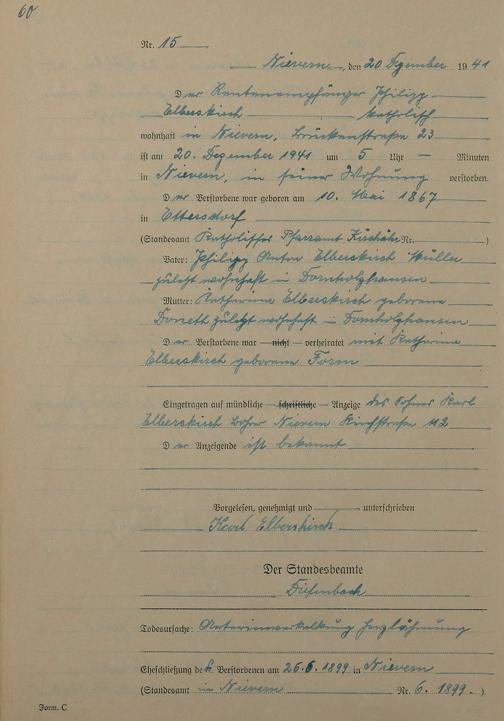 60
Nr. 15
Nievern, den 20 Dezember 1941
Der Rentenempfänger Philipp
Elberskirch katholisch
wohnhaft in Nievern, Brückenstraße 23
ist am 20. Dezember 1941 um 5 Uhr — Minuten
in Nievern, in seiner Wohnung verstorben.
Der Verstorbene war geboren am 10. Mai 1867
in Ettersdorf
(Standesamt Katholisches Pfarramt Nr. )
Vater: Philipp Anton Elberskirch Müller
zuletzt wohnhaft in Dornholzhausen
Mutter: Katharina Elberskirch geborene
Donett zuletzt wohnhaft in Dornholzhausen
Der Verstorbene war — nicht — verheiratet mit Katharina
Elberskirch geborene Form
Eingetragen auf mündliche — schriftliche — Anzeige des Sohnes Karl
Elberskirch Nievern Kirchstraße 112
Der Anzeigende ist bekannt
Vorgelesen, genehmigt und unterschrieben
Karl Elberskirch
Der Standesbeamte
Diefenbach
Todesursache: Arterienverkalkung Herzlähmung
Eheschließung des Verstorbenen am 26.6.1899 in Nievern
(Standesamt in Nievern Nr. 6. 1899.)
Form. C